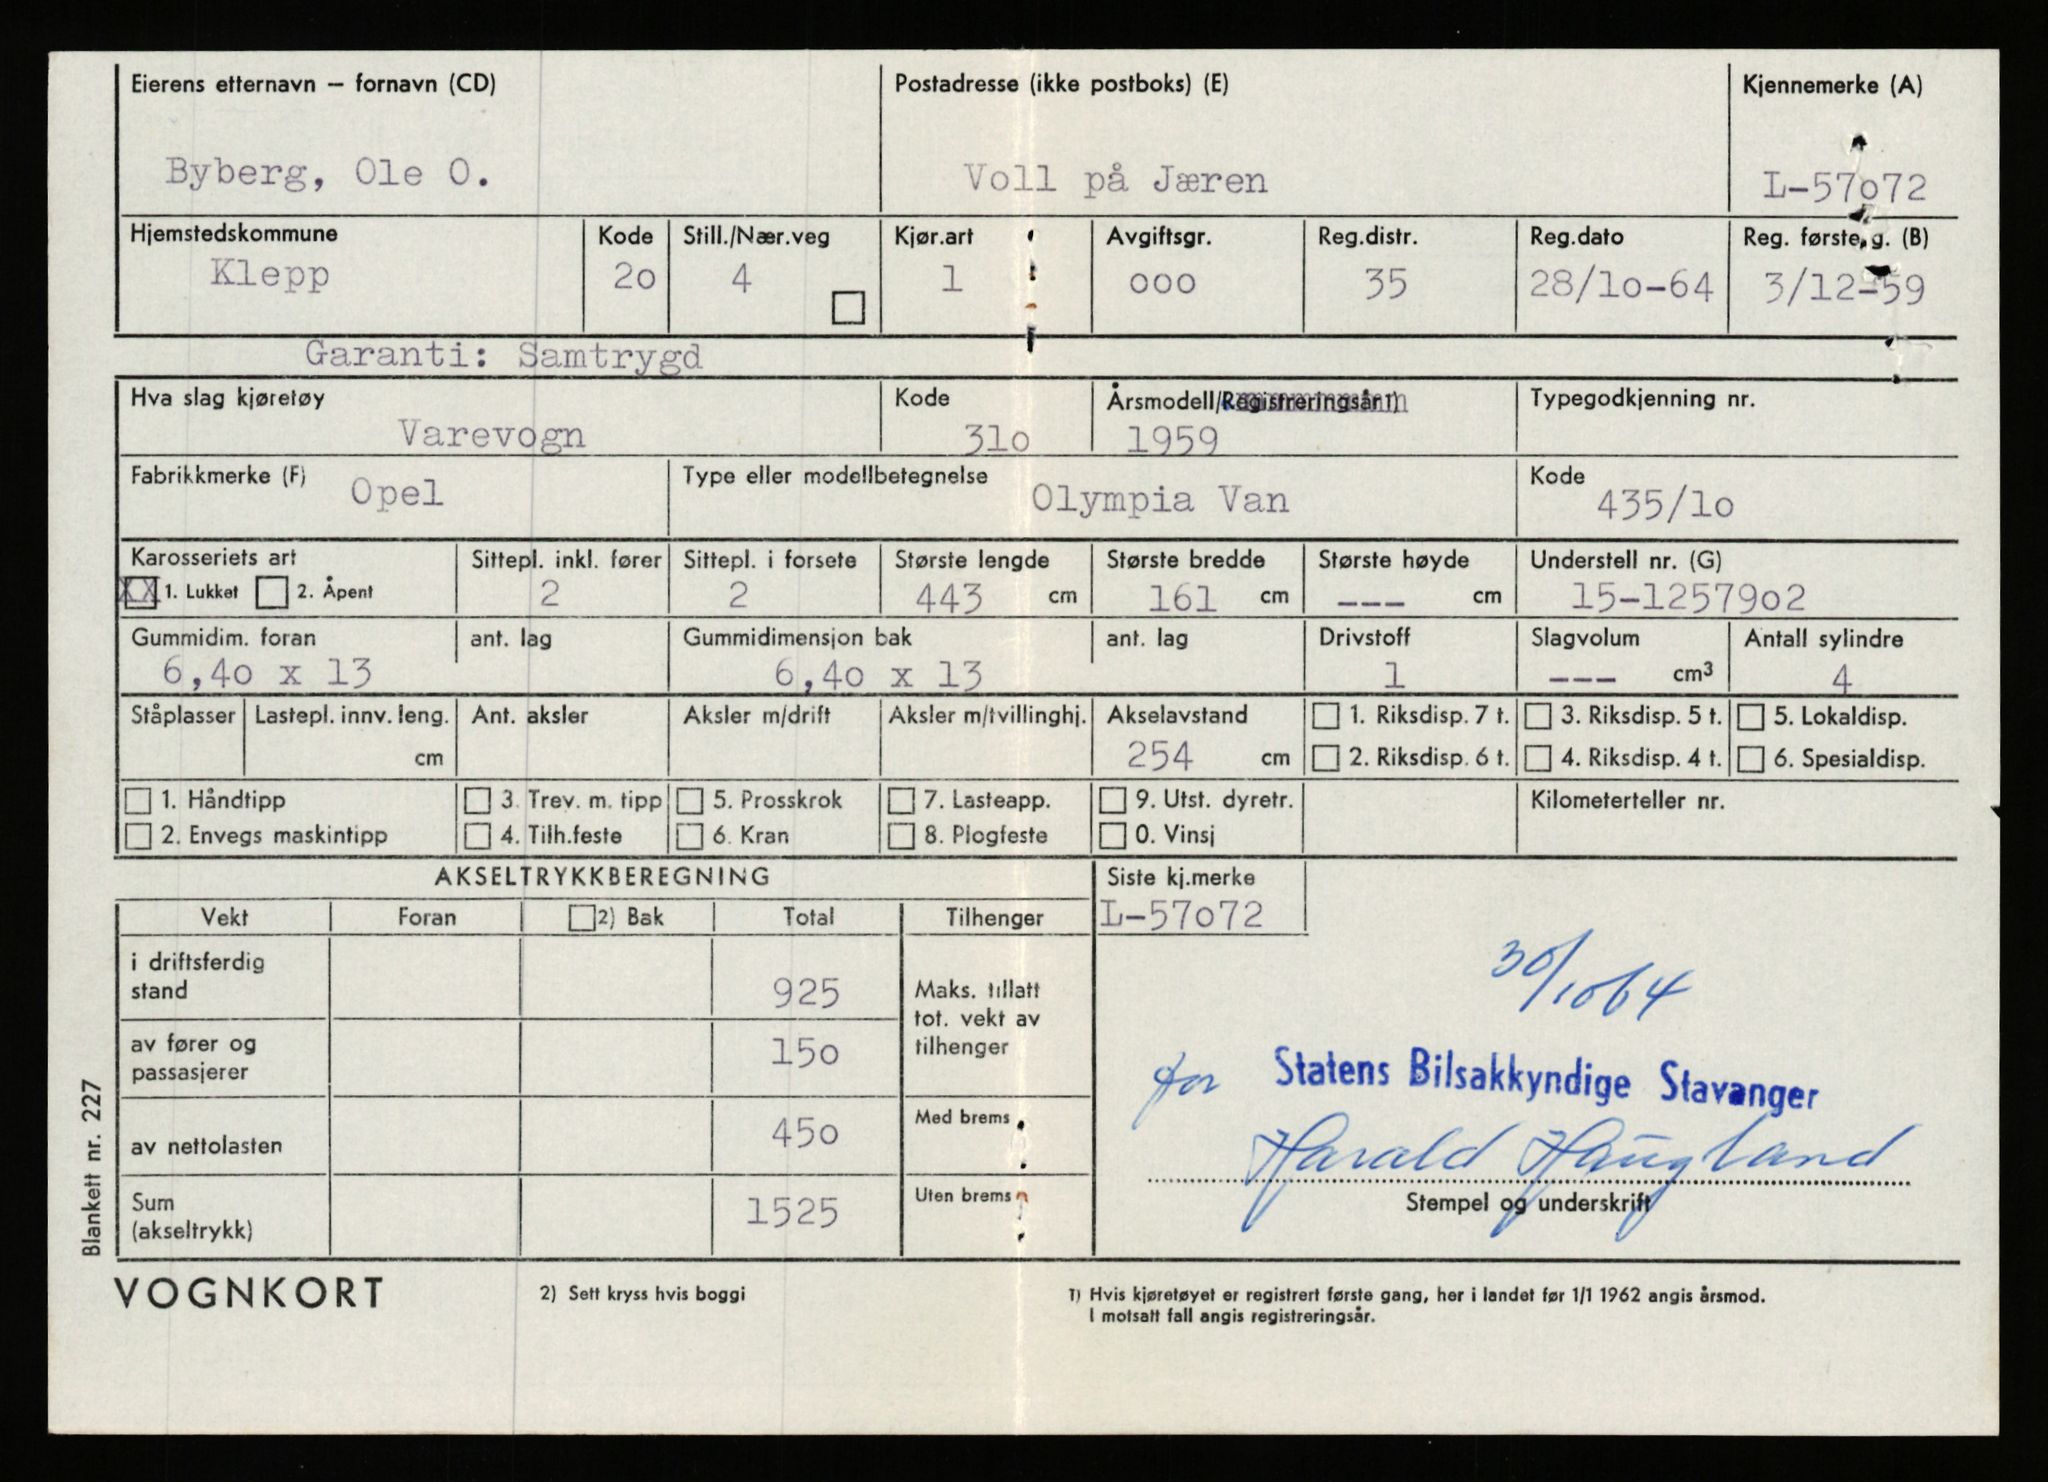 Eierens etternavn – fornavn (CD) Postadresse (ikke postboks) (E) Kjennemerke (A)
Byberg, Ole O. Voll på Jæren L-57o72
Hjemstedskommune Kode Still./Nær.veg Kjør.art Avgiftsgr. Reg.distr. Reg.dato Reg. første g. (B)
Klepp 2o 4 1 ooo 35 28/1o-64 3/12-59
Garanti: Samtrygd
Hva slag kjøretøy Kode Årsmodell/Registreringsår 1) Typegodkjenning nr.
Varevogn 31o 1959
Fabrikkmerke (F) Type eller modellbetegnelse Kode
Opel Olympia Van 435/1o
Karosseriets art Sittepl. inkl. fører Sittepl. i forsete Største lengde Største bredde Største høyde Understell nr. (G)
XX 1. Lukket 2. Åpent 2 2 443 cm 161 cm --- cm 15-12579o2
Gummidim. foran ant. lag Gummidimensjon bak ant. lag Drivstoff Slagvolum Antall sylindre
6,4o x 13 6,4o x 13 1 --- cm³ 4
Ståplasser Lastepl. innv. leng. Ant. aksler Aksler m/drift Aksler m/tvillinghj. Akselavstand 1. Riksdisp. 7 t. 3. Riksdisp. 5 t. 5. Lokaldisp.
cm 254 cm 2. Riksdisp. 6 t. 4. Riksdisp. 4 t. 6. Spesialdisp.
1. Håndtipp 3. Trev. m. tipp 5. Prosskrok 7. Lasteapp. 9. Utst. dyretr. Kilometerteller nr.
2. Envegs maskintipp 4. Tilh.feste 6. Kran 8. Plogfeste 0. Vinsj
AKSELTRYKKBEREGNING Siste kj.merke
Vekt Foran 2) Bak Total Tilhenger L-57o72
i driftsferdig
stand 925 Maks. tillatt
tot. vekt av
tilhenger
30/10 64
av fører og
passasjerer 15o
for Statens Bilsakkyndige Stavanger
av nettolasten 45o Med brems
Harald Haugland
Sum
(akseltrykk) 1525 Uten brems
Stempel og underskrift
Blankett nr. 227
VOGNKORT 2) Sett kryss hvis boggi 1) Hvis kjøretøyet er registrert første gang, her i landet før 1/1 1962 angis årsmod.
I motsatt fall angis registreringsår.